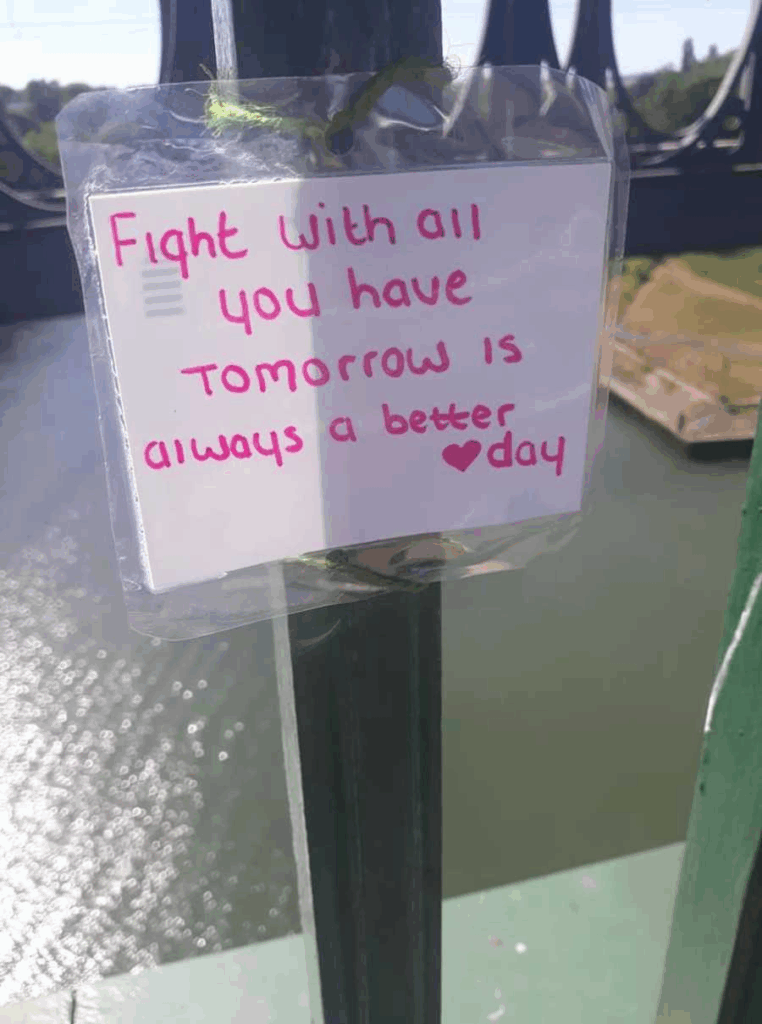 Fight with all
you have
Tomorrow is
always a better
♥day